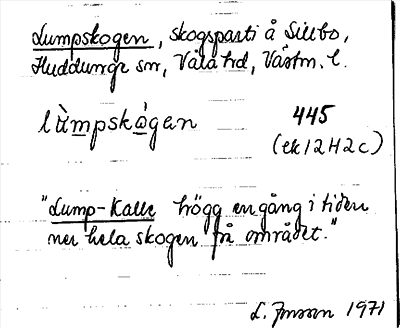 Lumpskogen, skogsparti å Sillbo,
Huddunge sn, Våla hd, Västm. l.
lùmpskògen 445
(ek 12H2c)
"Lump-Kalle högg en gång i tiden
ner hela skogen på området."
L. Jonsson 1971